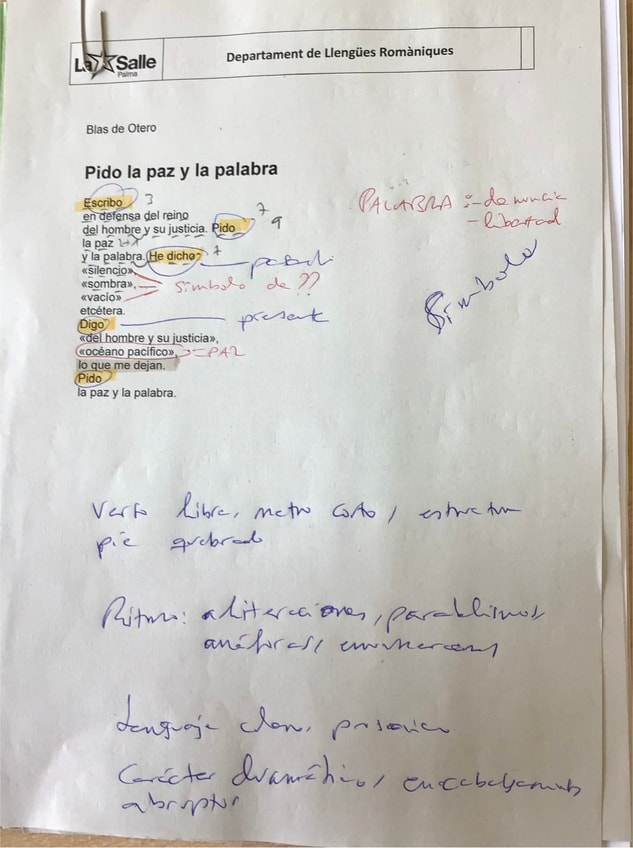 La Salle
Palma
Departament de Llengües Romàniques
Blas de Otero
Pido la paz y la palabra
Escribo 3
en defensa del reino 7
del hombre y su justicia. Pido 9
la paz
y la palabra. He dicho 7
«silencio»,
«sombra», símbolo de ??
«vacío»
etcétera.
Digo presente
«del hombre y su justicia»,
«océano pacífico», PAZ
lo que me dejan.
Pido
la paz y la palabra.
PALABRA :- denuncia
- libertad
Símbolo
Verso libre, metro corto, estructura
pie quebrado
Ritmo: aliteraciones, paralelismos,
anáforas,
Lenguaje claro, prosaico
Carácter dramático, encabalgamientos
abruptos